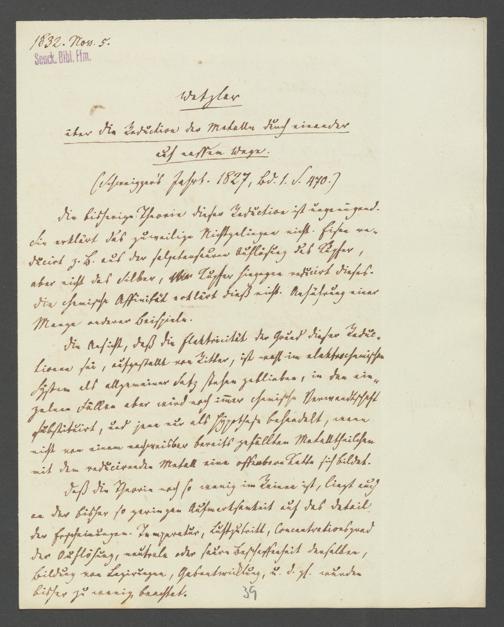 1832. Nov. 5.
Senck. Bibl. Ffm.
Wetzlar
über die Reduction der Metalle durch einander
auf nassem Wege.
(Schweigger's Jahrb. 1827, Bd. 1. S. 470.)
Die bisherige Theorie dieser Reduction ist ungenügend.
Sie erklärt das zuweilige Nichtgelingen nicht. Eisen re-
ducirt z. B. aus der salpetersauren Auflösung das Kupfer,
aber nicht das Silber, Kupfer hingegen reducirt dieses.
Die chemische Affinität erklärt dieß nicht. Anführung einer
Menge anderer Beispiele.
Die Ansicht, daß die Elektricität der Grund dieser Reduc-
tionen sei, aufgestellt von Ritter, ist wohl im elektrochemischen
System als allgemeiner Satz stehen geblieben, in den ein-
zelnen Fällen aber wird noch immer chemische Verwandtschaft
substituirt, und jene nur als Hypothese behandelt, wenn
nicht von einem nachweisbar bereits gefällten Metalltheilchen
mit dem reducirenden Metall eine offenbare Kette sich bildet.
Daß die Theorie noch so wenig im Reinen ist, liegt auch
an der bisher so geringen Aufmerksamkeit auf das Detail
der Erscheinungen. Temperatur, Luftzutritt, Concentrationsgrad
der Auflösung, neutrale oder saure Beschaffenheit derselben,
Bildung von Legirungen, Gasentwicklung, u. d. gl. wurden
bisher zu wenig beachtet.
39